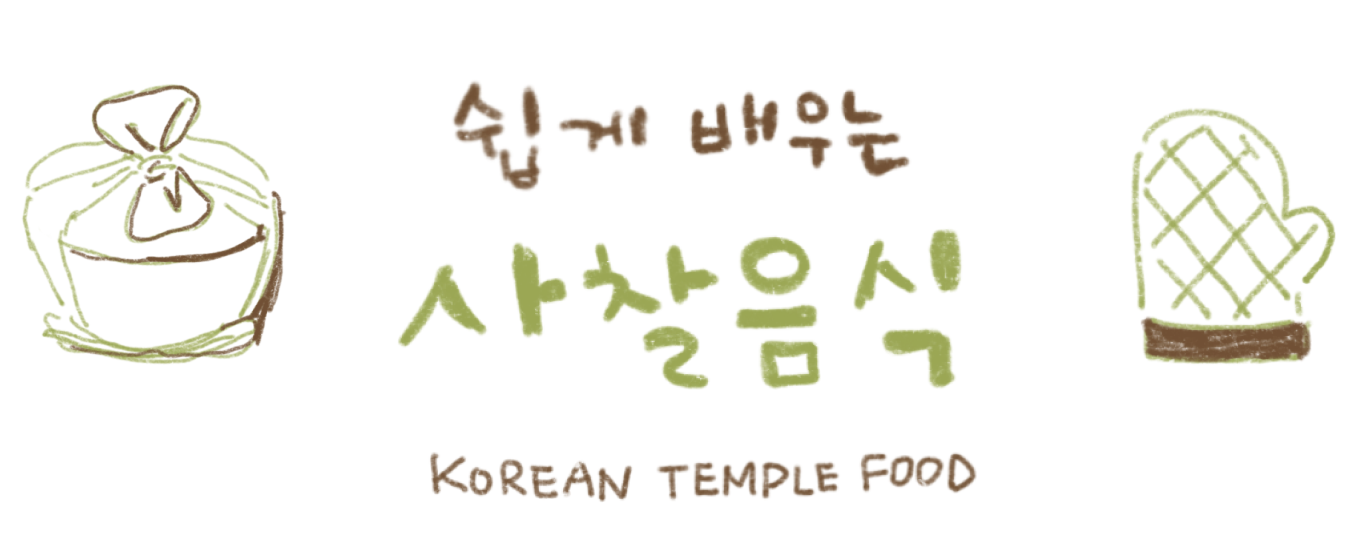 쉽게 배우는
사찰음식
KOREAN TEMPLE FOOD